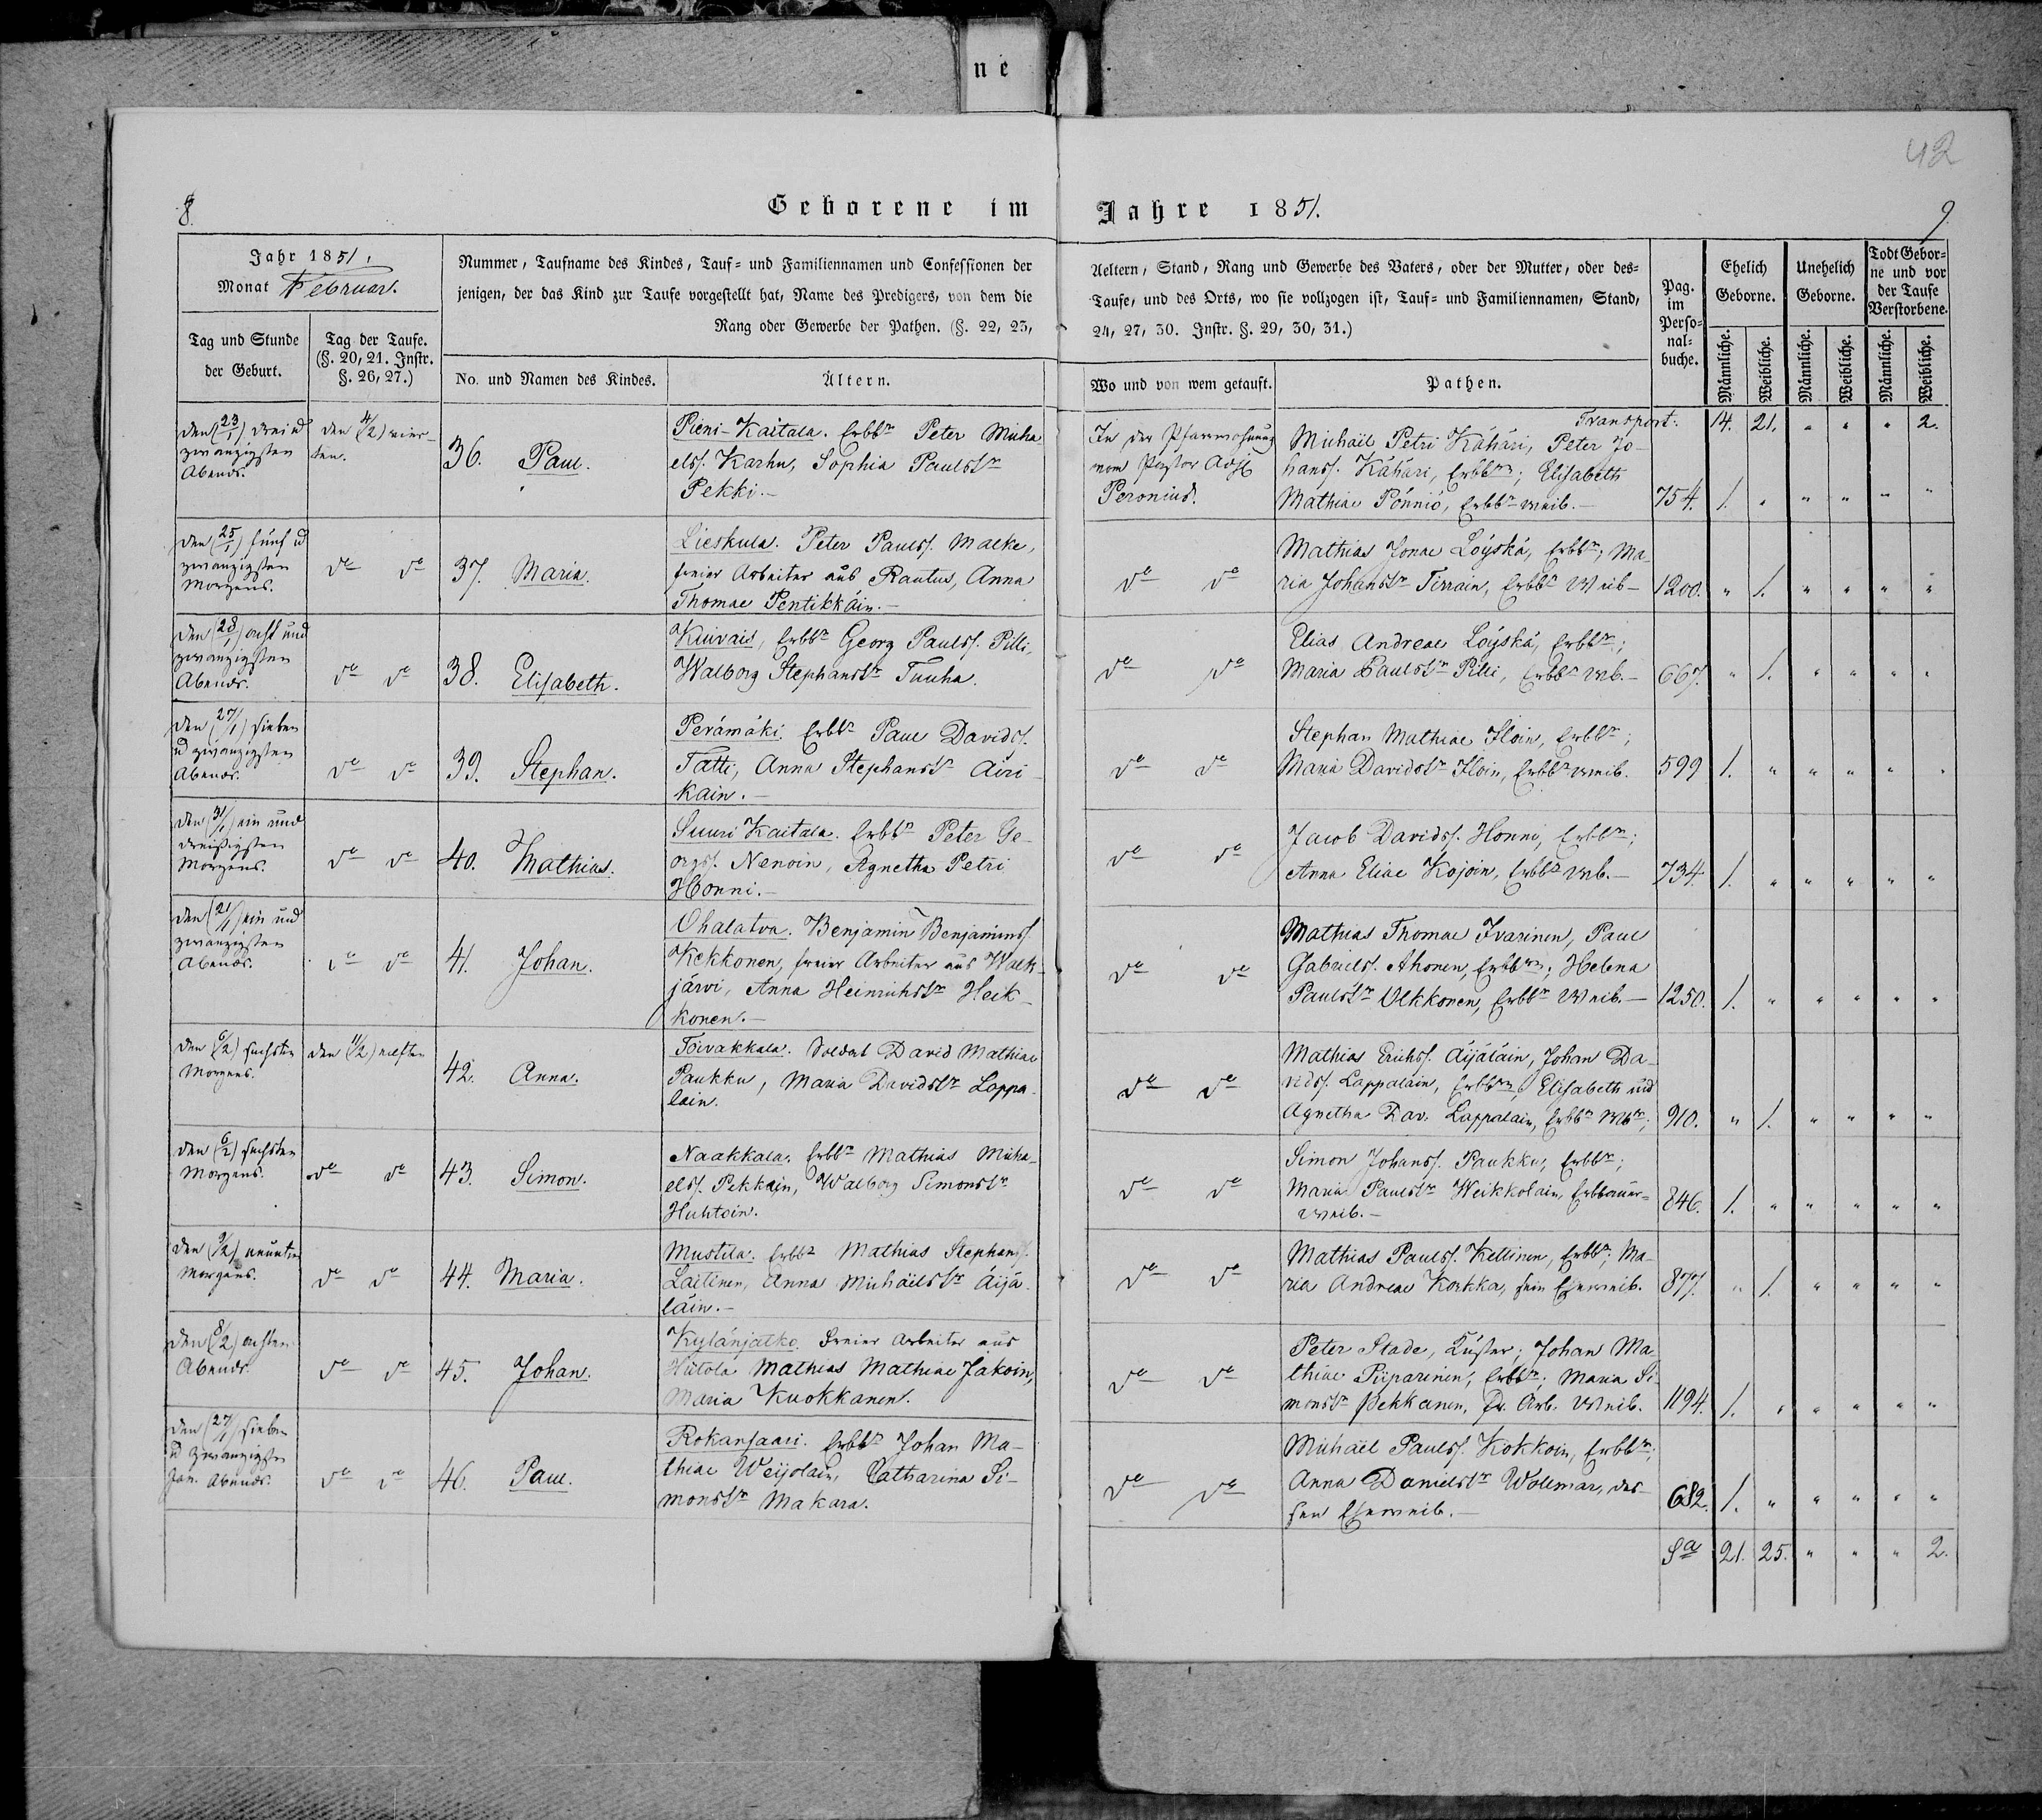 ne
42
8.
Geborene im Jahre 1851.
9.
Jahr 1851.
Monat Februar.
Nummer, Taufname des Kindes, Tauf- und Familiennamen und Confessionen der
jenigen, der das Kind zur Taufe vorgestellt hat, Name des Predigers, von dem die
Rang oder Gewerbe der Pathen. (§. 22, 23,
Aeltern, Stand, Rang und Gewerbe des Vaters, oder der Mutter, oder des-
Taufe, und des Orts, wo sie vollzogen ist, Tauf- und Familiennamen, Stand,
24, 27, 30. Instr. §. 29, 30, 31.)
Pag.
im
Perso-
nal-
buche.
Ehelich
Geborne.
Unehelich
Geborne.
Todt Gebor-
ne und vor
der Taufe
Verstorbene.
Tag und Stunde
der Geburt.
Tag der Taufe.
(§. 20, 21. Instr.
§. 26, 27.)
No. und Namen des Kindes.
Ältern.
Wo und von wem getauft.
Pathen.
Männliche.
Weibliche.
Männliche.
Weibliche.
Männliche.
Weibliche.
Transport. 14. 21. " " " 2.
den (23/1) drei u
zwanzigsten
Abends.
den (4/2) vier-
ten.
36. Paul.
Pieni-Kaitala. Erbbr Peter Micha
elss. Karhu, Sophia Paulstr
Pekki.-
In der Pfarrwohnung
vom Pastor Adj.
Peronius.
Michäil Petri Kähäri, Peter Jo-
hanss. Kähäri, Erbbrn; Elisabeth
Mathiae Pönniö, Erbbr weib.-
754. 1. " " " " "
den (25/1) fünf u
zwanzigsten
Morgens.
do do
37. Maria.
Lieskula. Peter Paulss. Malke,
freier Arbeiter aus Rautus, Anna
Thomae Pentikkäin.-
do do
Mathias Jonae Löyskä, Erbbr; Ma-
ria Johanstr Tirrain, Erbbr Weib-
1200. " 1. " " " "
den (28/1) acht und
zwanzigsten
Abends.
do do
38. Elisabeth.
Kuivais, Erbbr Georg Paulss. Pilli,
Walborg Stephanstr Tuuha.
do do
Elias Andreae Löyskä, Erbbr;
Maria Paulstr Pilli, Erbbr wb.-
667. " 1. " " " "
den (27/1) sieben
u zwanzigsten
Abends.
do do
39. Stephan.
Perämäki. Erbbr Paul Davids.
Tatti, Anna Stephanstr Äiri-
kain.-
do do
Stephan Mathiae Iloin, Erbbr;
Maria Davidstr Iloin, Erbbr weib.
599 1. " " " " "
den (31/1) ein und
dreißigsten
Morgens.
do do
40. Mathias.
Suuri Kaitala. Erbbr Peter Ge-
orgs. Nenoin, Agnetha Petri
Honni.-
do do
Jacob Davids. Honni, Erbbr;
Anna Eliae Kojoin, Erbbr wb.-
734. 1. " " " " "
den (21/1) ein und
zwanzigsten
Abends.
do do
41. Johan.
Ohalatva. Benjamin Benjamins.
Kekkonen, freier Arbeiter aus Walk-
järvi, Anna Heinrichstr Heik-
konen.-
do do
Mathias Thomae Ivarinen, Paul
Gabriels. Ahonen, Erbbrn; Helena
Paulstr Ulkkonen, Erbbr Weib.-
1250. 1. " " " " "
den (6/2) sechsten
Morgens.
den (11/2) elften
42. Anna.
Toivakkala. Soldat David Mathiae
Paukku, Maria Davidstr Lappa-
lain.
do do
Mathias Erichs. Äijäläin, Johan Da-
vids. Lappalain, Erbbrn, Elisabeth und
Agnetha Dav. Lappalain, Erbbr Wbr;
910. " 1. " " " "
den (6/2) sechsten
Morgens.
do do
43. Simon.
Naakkala. Erbbr Mathias Micha-
els. Pekkain, Walborg Simonstr
Huhtoin.
do do
Simon Johans. Paukku, Erbbr;
Maria Paulstr Weikkolain, Erbbauer-
weib.-
846. 1. " " " " "
den (9/2) neunten
Morgens.
do do
44. Maria.
Mustila. Erbbr Mathias Stephans.
Laitinen, Anna Michäilstr Äijä-
läin.-
do do
Mathias Pauls. Kellinen, Erbbr; Ma-
ria Andreae Korkka, sein Eheweib.
877. " 1. " " " "
den (8/2) achten
Abends.
do do
45. Johan.
Kylänjatko. Freier Arbeiter aus
Hiitola Mathias Mathiae Jakoin,
Maria Kuokkanen.
do do
Peter Stade, Küster; Johan Ma-
thiae Piiparinen, Erbbr; Maria Si-
monstr Pekkanen, Fr. Arb. Weib.
1194. 1. " " " " "
den (27/1) sieben
u zwanzigsten
Jan. Abends.
do do
46. Paul.
Rokansaari. Erbbr Johan Ma-
thiae Weijolain, Catharina Si-
monstr Makara.
do do
Michäel Pauls. Kokkoin, Erbbr;
Anna Danielstr Wollmar, des-
sen Eheweib.-
682. 1. " " " " "
Sa 21. 25. " " " 2.